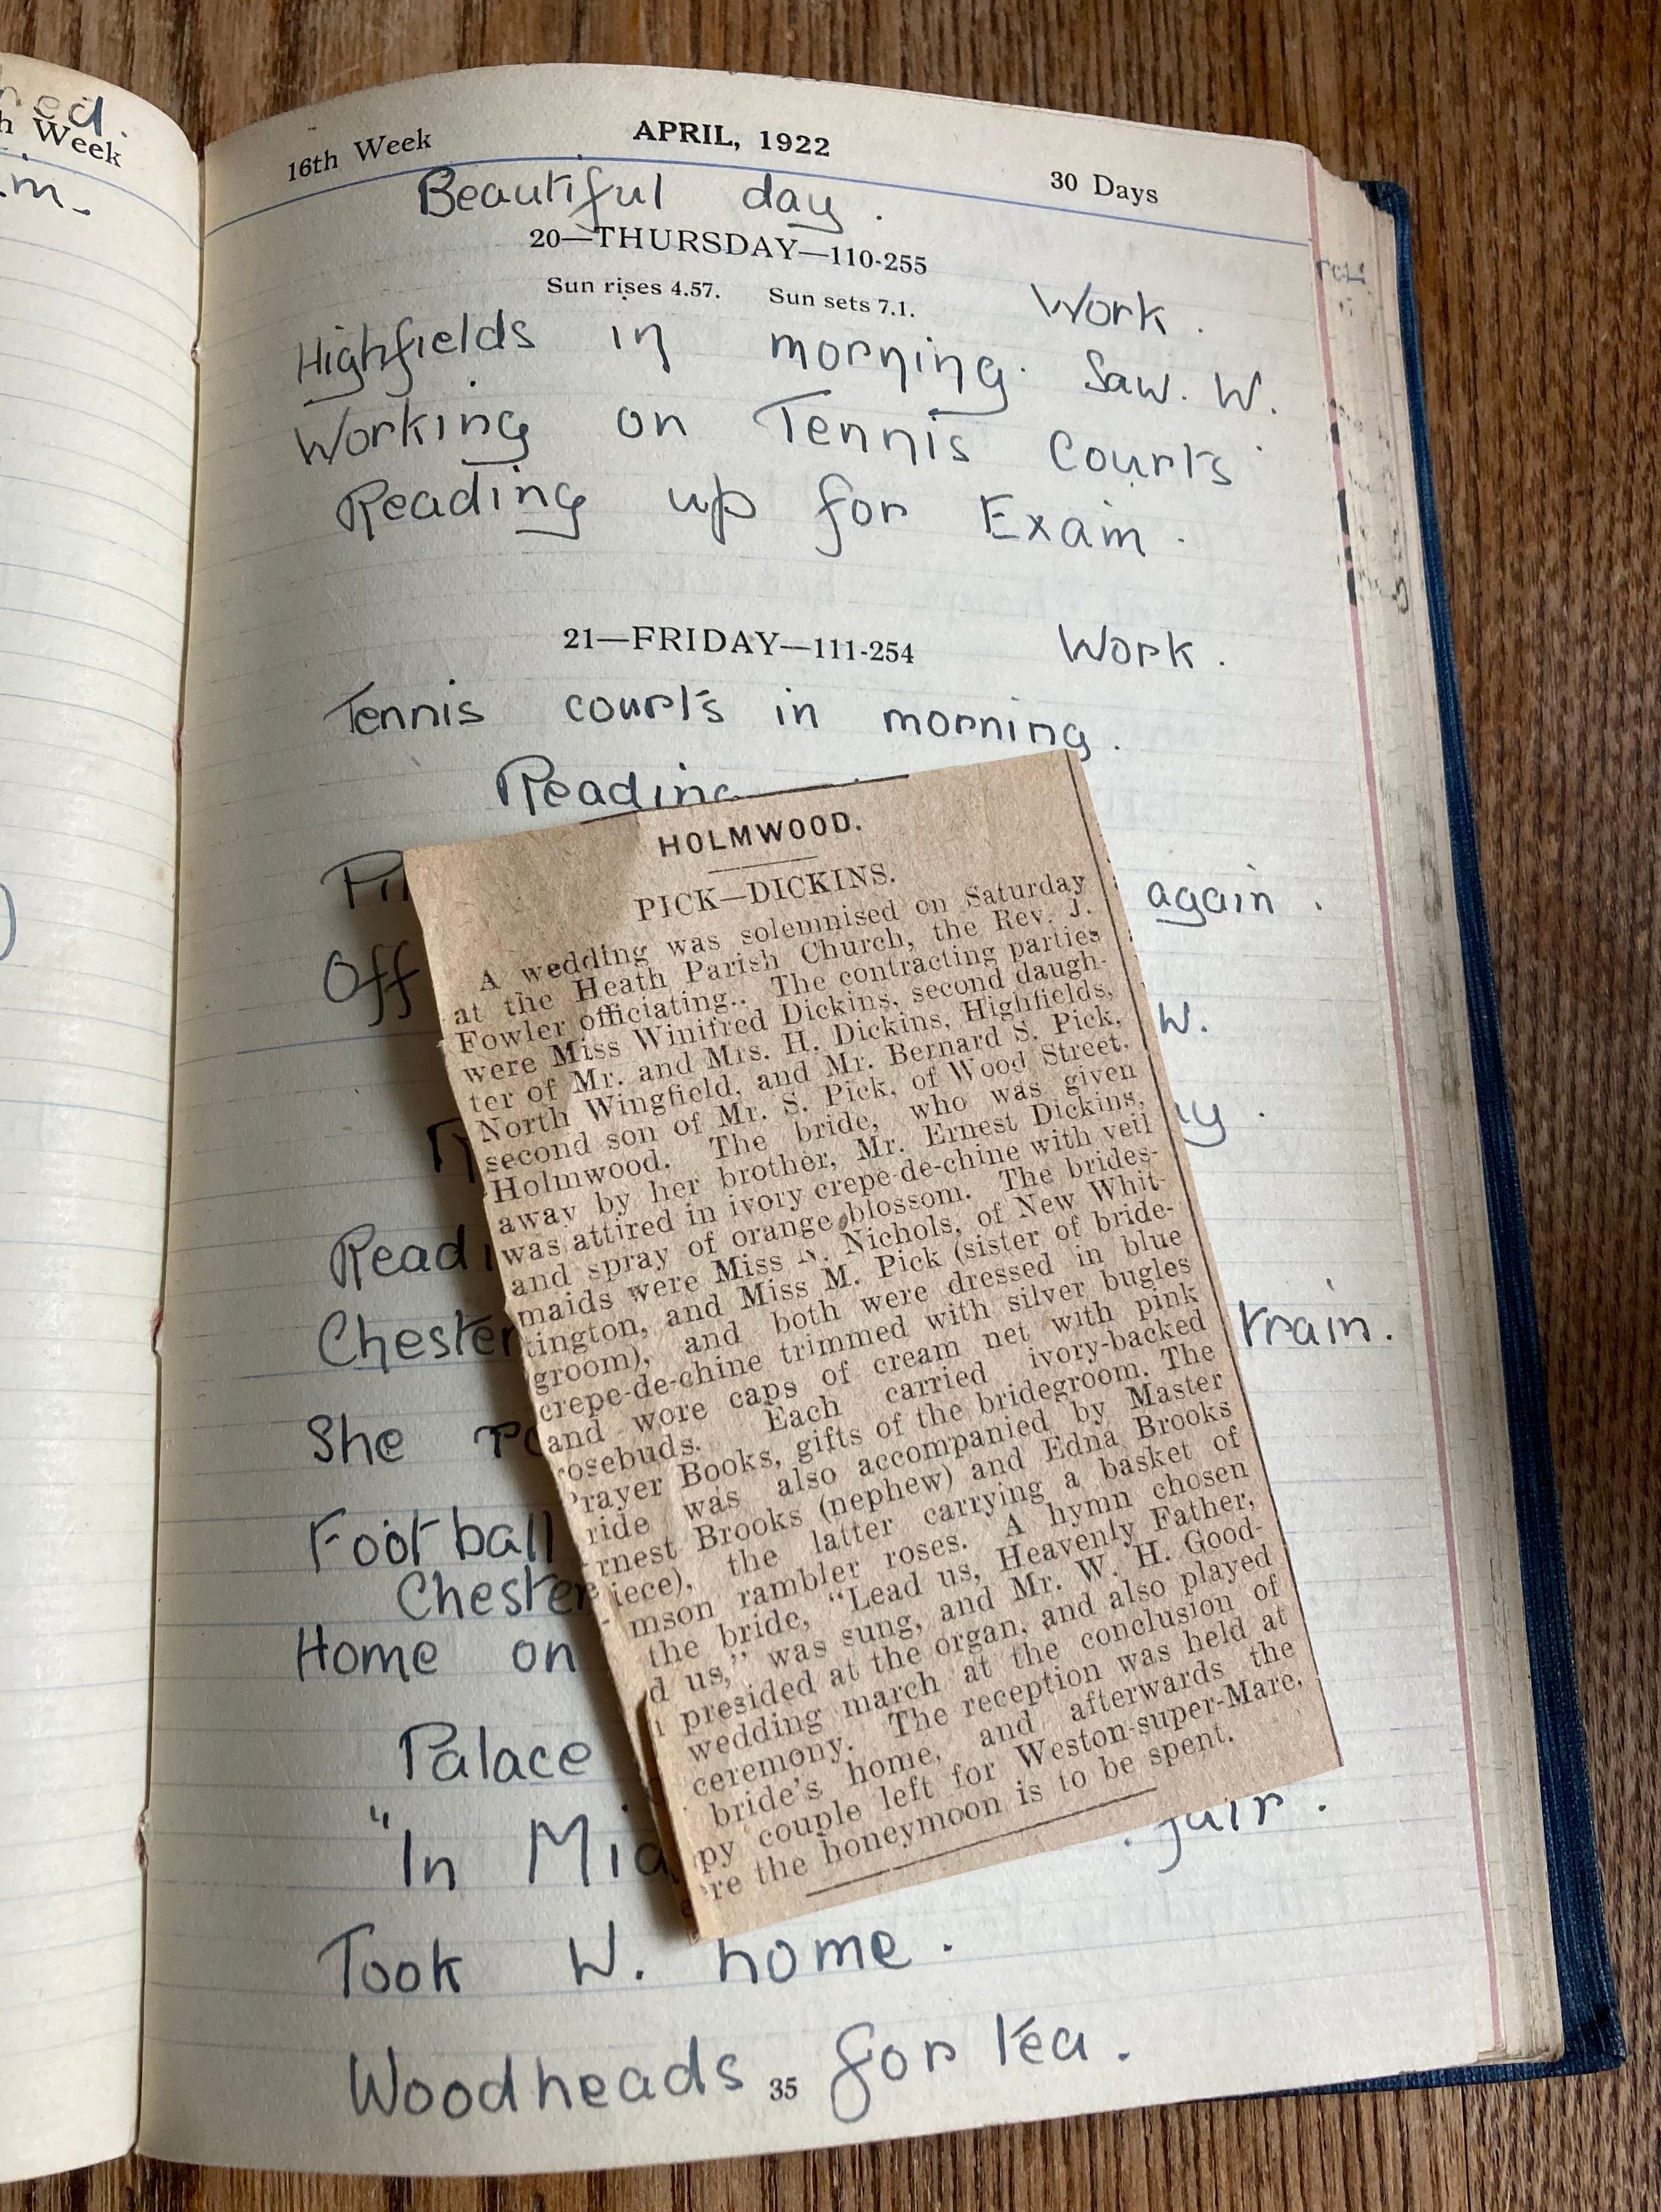 hed.
h Week
im.
16th Week
APRIL, 1922
30 Days
Beautiful day.
20—THURSDAY—110-255
Sun rises 4.57. Sun sets 7.1.
Work.
Highfields in morning. Saw. W.
Working on Tennis Courts
Reading up for Exam.
21—FRIDAY—111-254
Work.
Tennis courts in morning.
Reading
again.
Off
W.
Read
Chester
train.
She
Football
Chester
Home on
Palace
"In
fair.
Took W. home.
Woodheads for tea.
35
HOLMWOOD.
PICK—DICKINS.
A wedding was solemnised on Saturday
at the Heath Parish Church, the Rev. J.
Fowler officiating.. The contracting parties
were Miss Winifred Dickins, second daugh-
ter of Mr. and Mrs. H. Dickins, Highfields,
North Wingfield, and Mr. Bernard S. Pick,
second son of Mr. S. Pick, of Wood Street,
Holmwood. The bride, who was given
away by her brother, Mr. Ernest Dickins,
was attired in ivory crepe-de-chine with veil
and spray of orange blossom. The brides-
maids were Miss N. Nichols, of New Whit-
tington, and Miss M. Pick (sister of bride-
groom), and both were dressed in blue
crepe-de-chine trimmed with silver bugles
and wore caps of cream net with pink
rosebuds. Each carried ivory-backed
Prayer Books, gifts of the bridegroom. The
ride was also accompanied by Master
rnest Brooks (nephew) and Edna Brooks
iece), the latter carrying a basket of
mson rambler roses. A hymn chosen
the bride, "Lead us, Heavenly Father,
d us," was sung, and Mr. W. H. Good-
presided at the organ, and also played
wedding march at the conclusion of
ceremony. The reception was held at
bride's home, and afterwards the
py couple left for Weston-super-Mare,
re the honeymoon is to be spent.